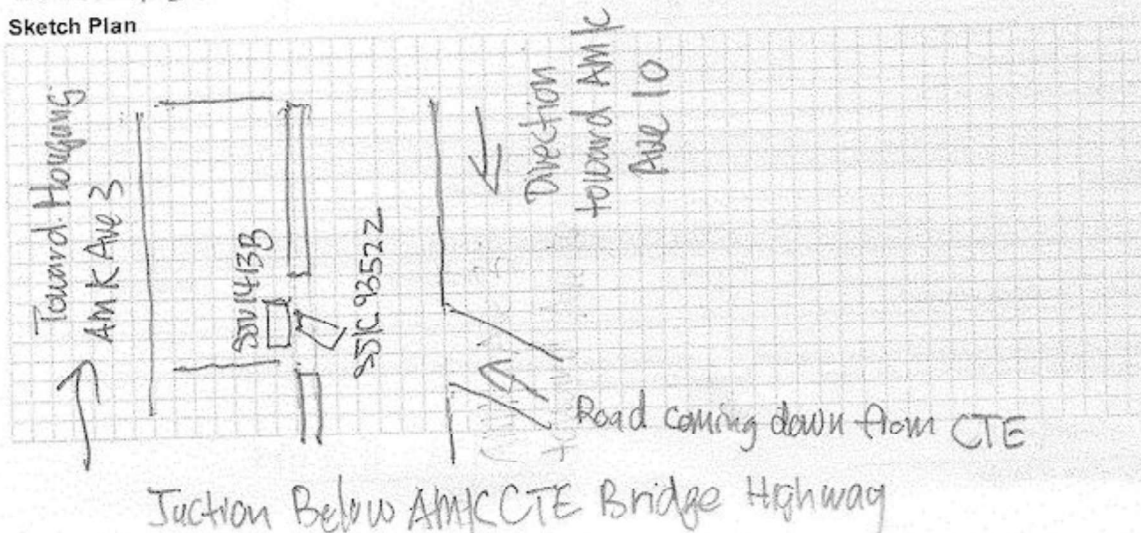 Sketch Plan
Toward Hougang
AMK Ave 3
SJU1413B
SJK9352Z
Direction
toward AMK
Ave 10
Road coming down from CTE
Juction Below AMK CTE Bridge Highway